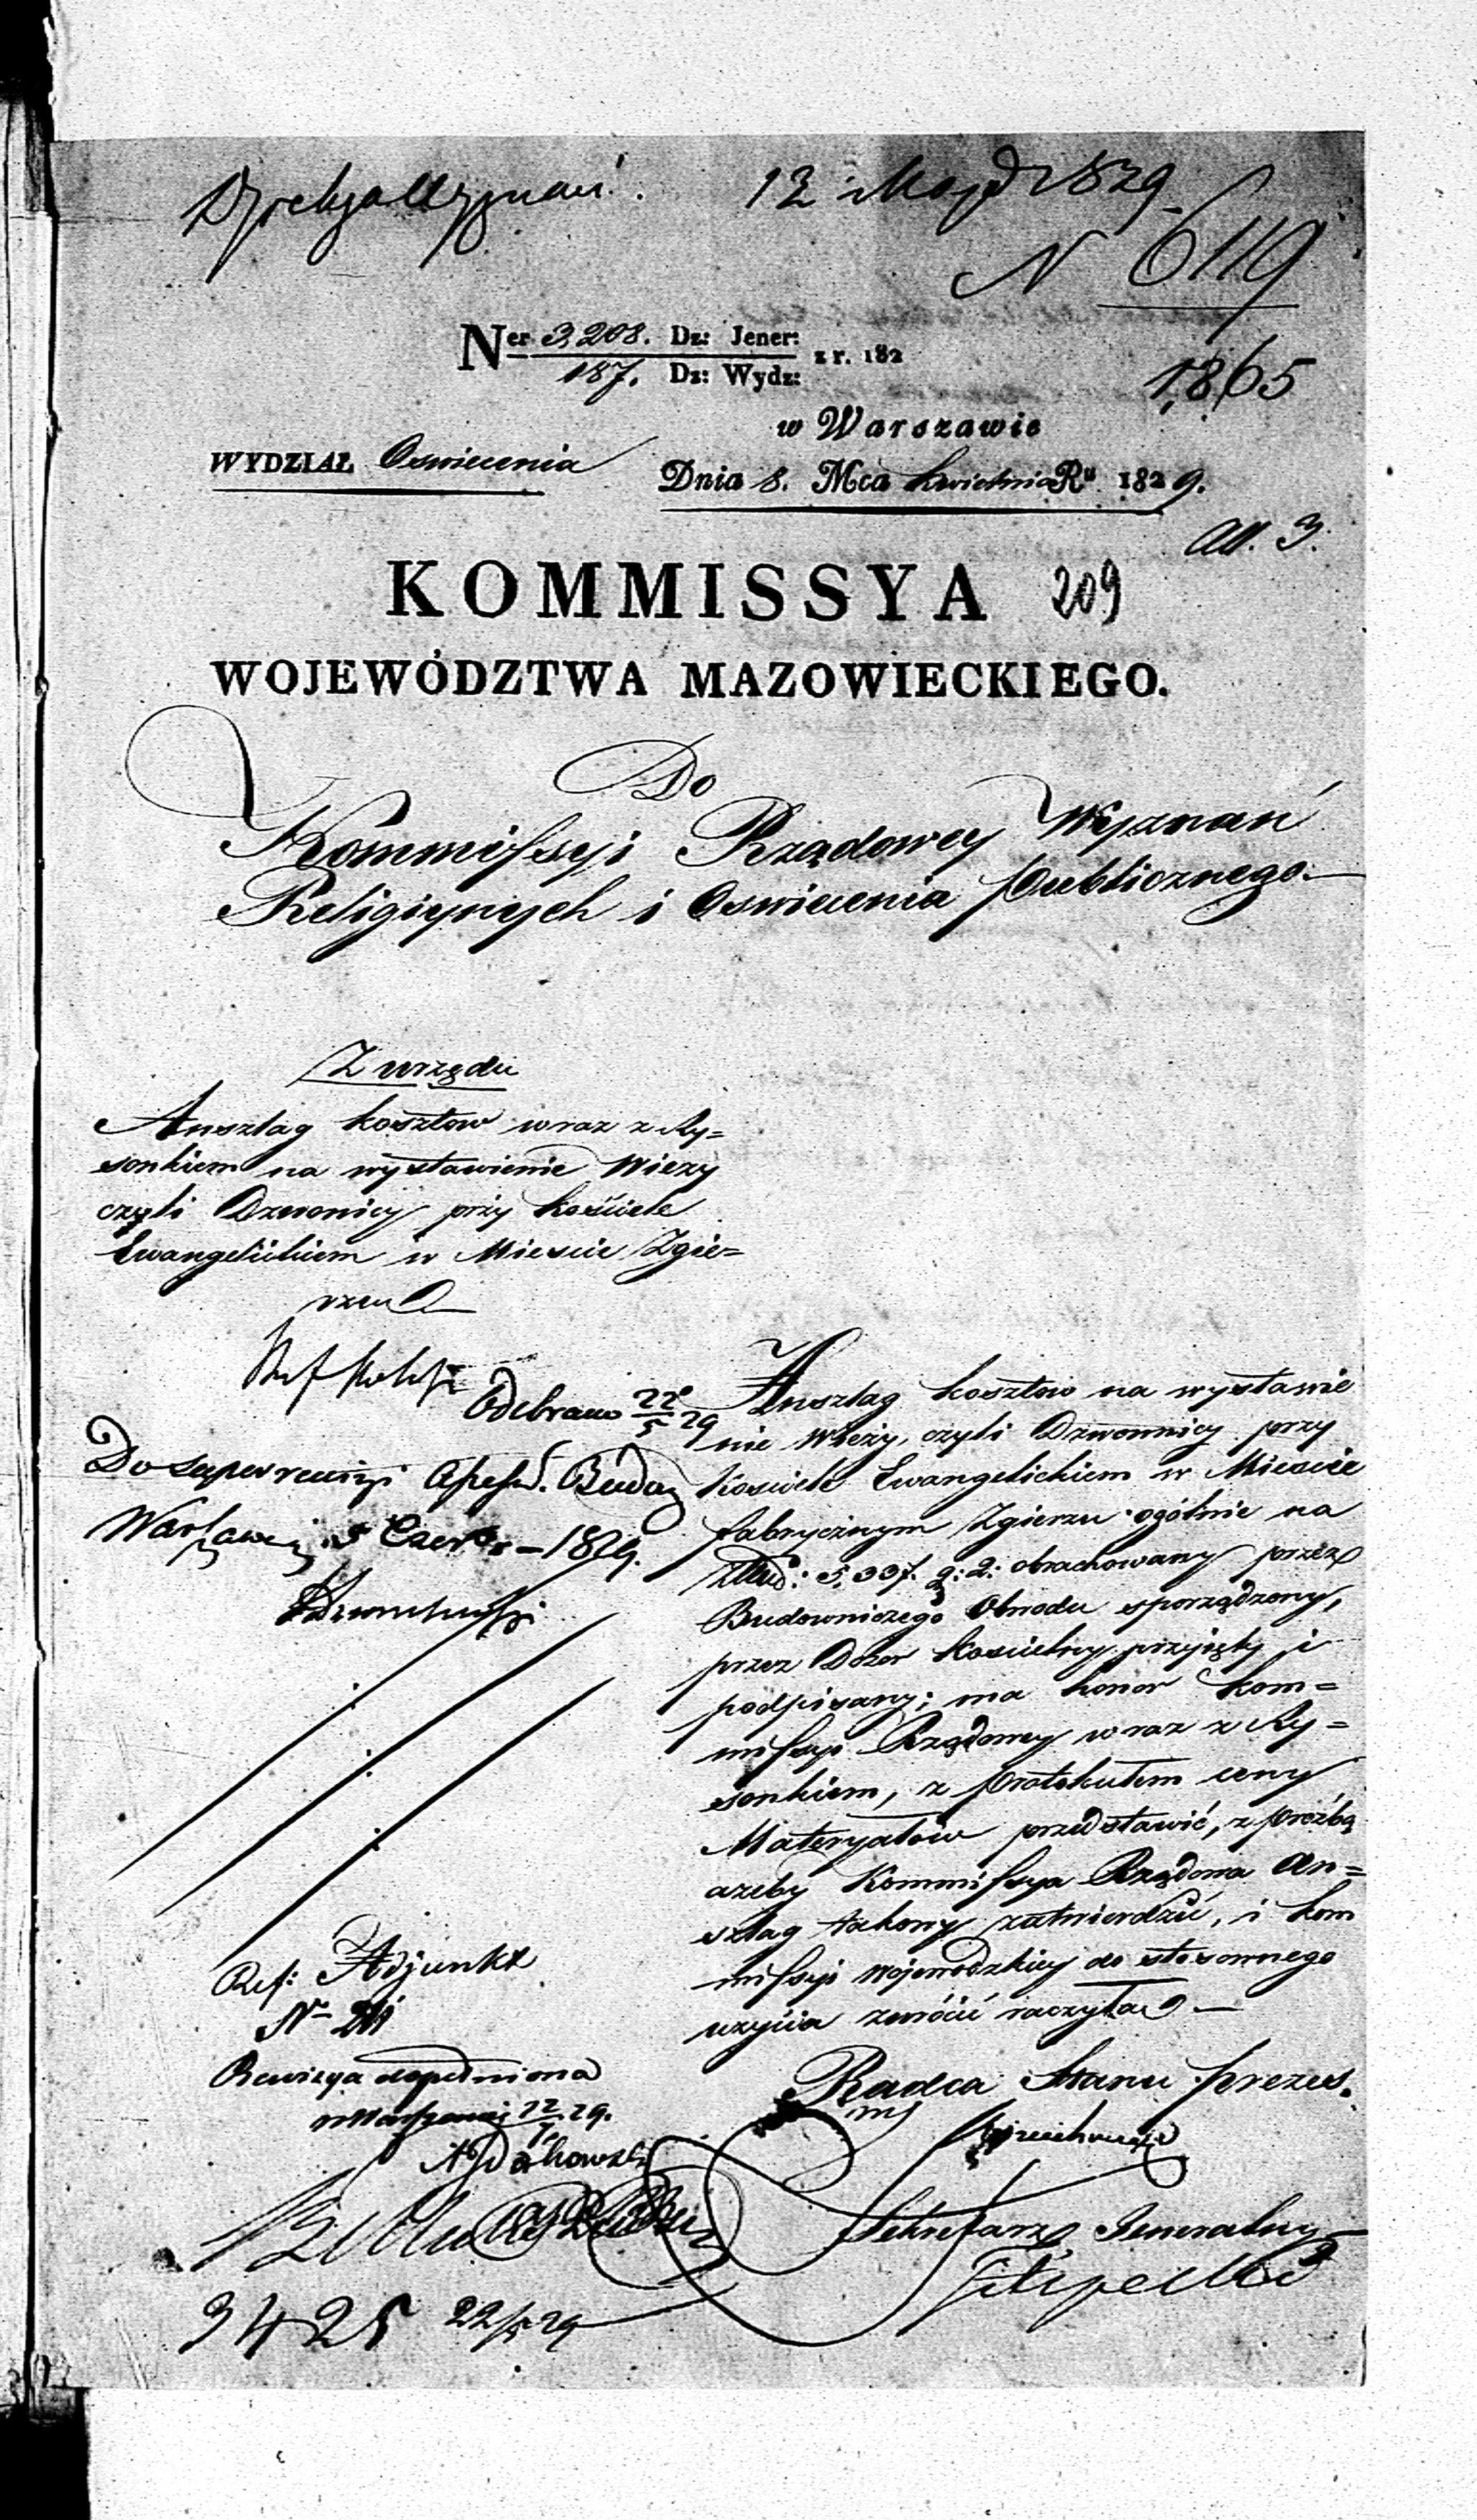 12 Maja 1829
N 6119
Ner 3,208. Dz: Jener:
187. Dz: Wydz: z r. 182
1865
w Warszawie
WYDZIAŁ Oswiecenia
Dnia 8. Mca Kwietnia Ru 1829.
All. 3.
KOMMISSYA 209
WOJEWÓDZTWA MAZOWIECKIEGO.
Do
Kommissyi Rządowey Wyznań
Religiynych i Oswiecenia Publicznego.
Z urzędu
Anszlag kosztow wraz z Ry=
sonkiem na wystawienie Wiezy
czyli Dzwonicy przy kościele
Ewangelickiem w Miescie Zgie=
rzu
Odebrano 22/5 29
Do superrewizyi
Warszawie 5 Czer 1829.
Anszlag kosztow na wystawie
nie Wieży, czyli Dzwonnicy przy
Kosciele Ewangelickiem w Miescie
fabrycznym Zgierzu ogólnie na
5,337. g: 2: obrachowany przez
Budowniczego Obwodu sporządzony,
przez Dozor Koscielny przyięty i
podpisany; ma honor Kom=
missyi Rządowey wraz z Ry=
sonkiem, z Protokułem ceny
Materyałów przedstawić, z proźbą
azeby Kommissya Rządowa An=
szlag takowy zatwierdzić, i Kom
missyi Wojewodzkiey do stosownego
uzycia zwrócić raczyła
Ref: Adjunkt
Rewizya dopełniona
w Warszawie 12/7 29.
Radca Stanu Prezes.
Sekretarz Jeneralny
3425 22/5 29